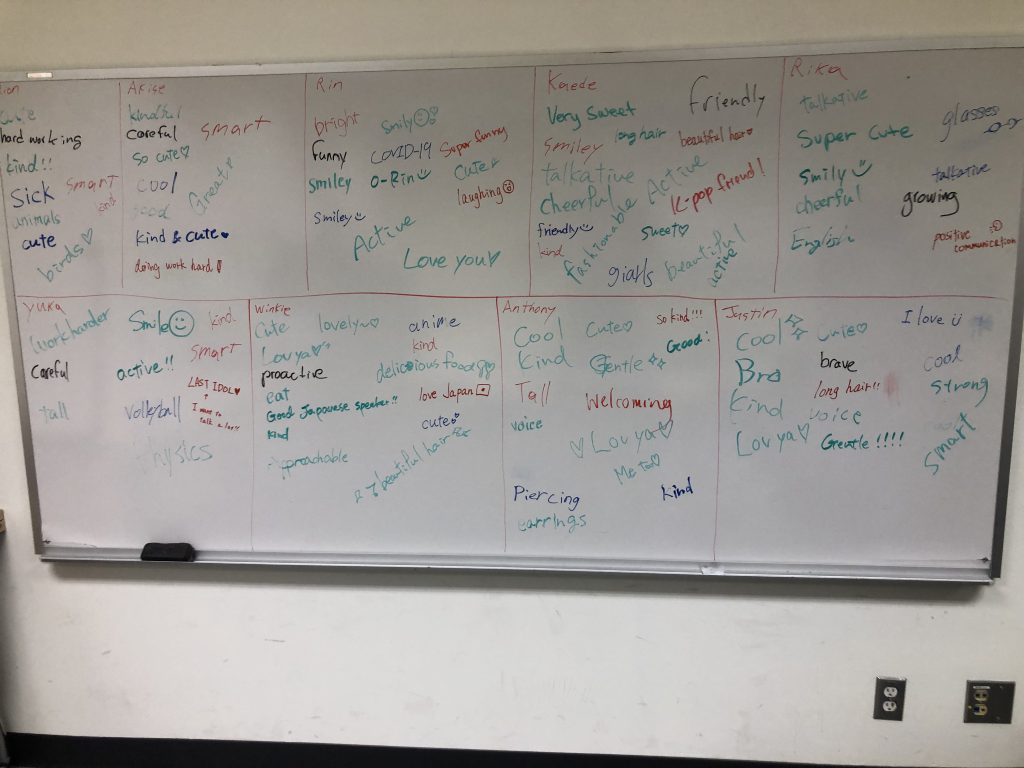 cute
hard working
kind!!
Sick
smart
kind
animals
cute
birds♡
Akise
kindful
careful
smart
so cute♡
cool
good
Great!
kind & cute♥
doing work hard!
Rin
bright
Smily☺
funny
COVID-19
Super funny
smiley
o-Rin☺
cute
laughing☺
Smiley☺
Active
Love you♡
Kaede
Very Sweet
friendly
smiley
long hair
beautiful hair♥
talkative
Active
K-pop friend!
Cheerful
friendly☺
fashionable
sweet♡
kind
giarls
beautiful
active!
Rika
talkative
glasses
Super Cute
Smily☺
talkative
cheerful
growing
English
positive
communication
Yuka
workharder
Smile☺
kind.
smart
Careful
active!!
LAST IDOL♥
↑
I want to
talk a lot!!
tall
volleyball
physics
Winkie
Cute
lovely~♡
anime
Lov ya♡
kind
proactive
delicious food
eat
love Japan
Good Japanese speaker!!
cute
kind
approachable
beautiful hair
Anthony
Cool
Cute♡
so kind!!!
Kind
Gentle
Good!
Tall
Welcoming
voice
♡Lov ya♡
Me too♡
Piercing
kind
earrings
Justin
Cool
Cute♡
I love ☺
Bro
brave
cool
long hair!!
strong
kind
voice
Lov ya♡
Gentle!!!!
smart